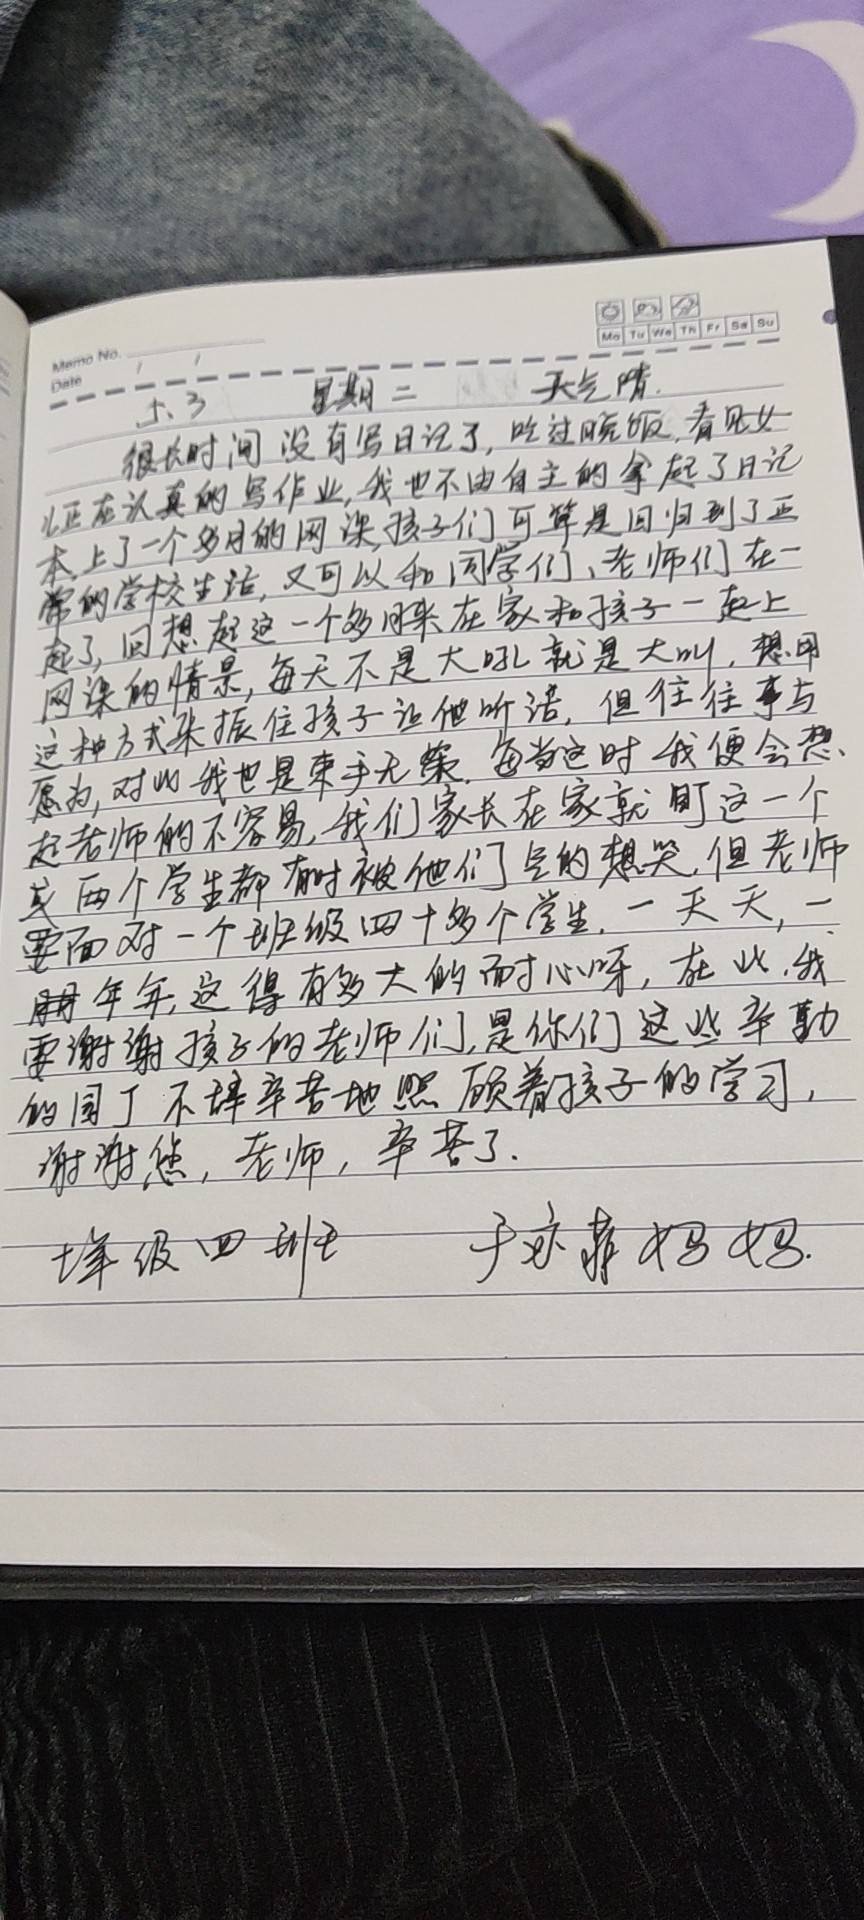 Memo No.
Mo Tu We Th Fr Sa Su
Date / /
5、3 星期二 天气晴.
很长时间没有写日记了,吃过晚饭,看见女
儿正在认真的写作业,我也不由自主的拿起了日记
本,上了一个多月的网课,孩子们可算是回归到了正
常的学校生活,又可以和同学们、老师们在一
起了,回想起这一个多月来在家和孩子一起上
网课的情景,每天不是大吼就是大叫,想用
这种方式来振住孩子让他听话,但往往事与
愿为,对此我也是束手无策.每当这时我便会想
起老师的不容易,我们家长在家就盯这一个
或两个学生都有时被他们气的想哭,但老师
要面对一个班级四十多个学生,一天天,一
年年,这得有多大的耐心呀,在此,我
要谢谢孩子的老师们,是你们这些辛勤
的园丁不辞辛苦地照顾着孩子的学习,
谢谢您,老师,辛苦了.
年级四班 于亦菲妈妈.